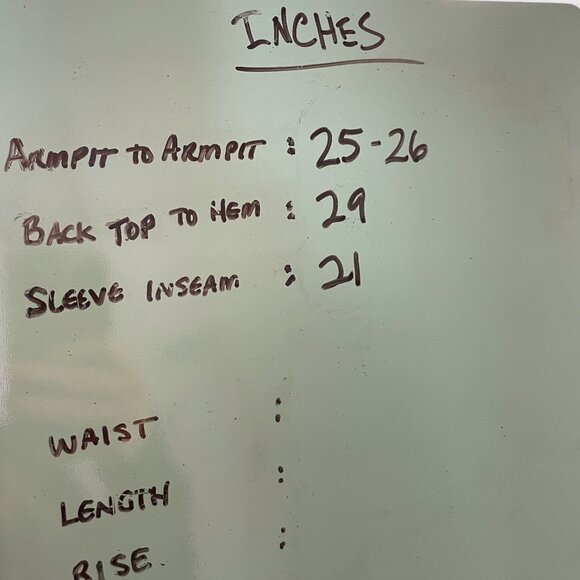 INCHES
ARMPIT TO ARMPIT : 25-26
BACK TOP TO HEM : 29
SLEEVE INSEAM : 21
WAIST :
LENGTH :
RISE :